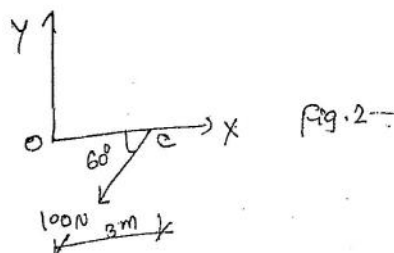 Y
O
60°
C
X
Fig. 2-
100N
3m